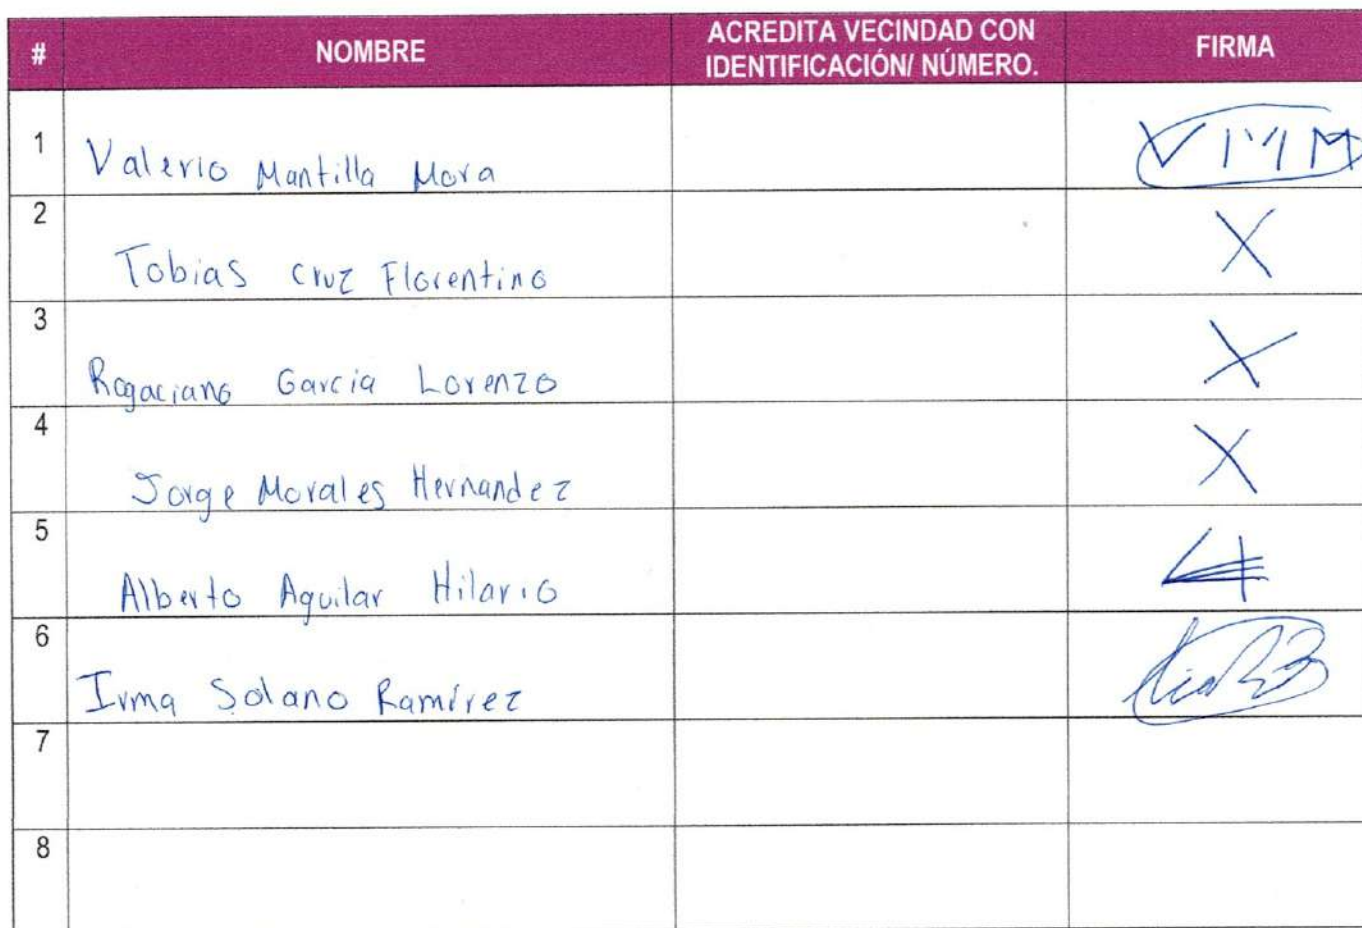 # NOMBRE ACREDITA VECINDAD CON IDENTIFICACIÓN/ NÚMERO. FIRMA
1 Valerio Mantilla Mora VMM
2 Tobias Cruz Florentino X
3 Rogaciano Garcia Lorenzo X
4 Jorge Morales Hernandez X
5 Alberto Aguilar Hilario
6 Irma Solano Ramírez
7
8